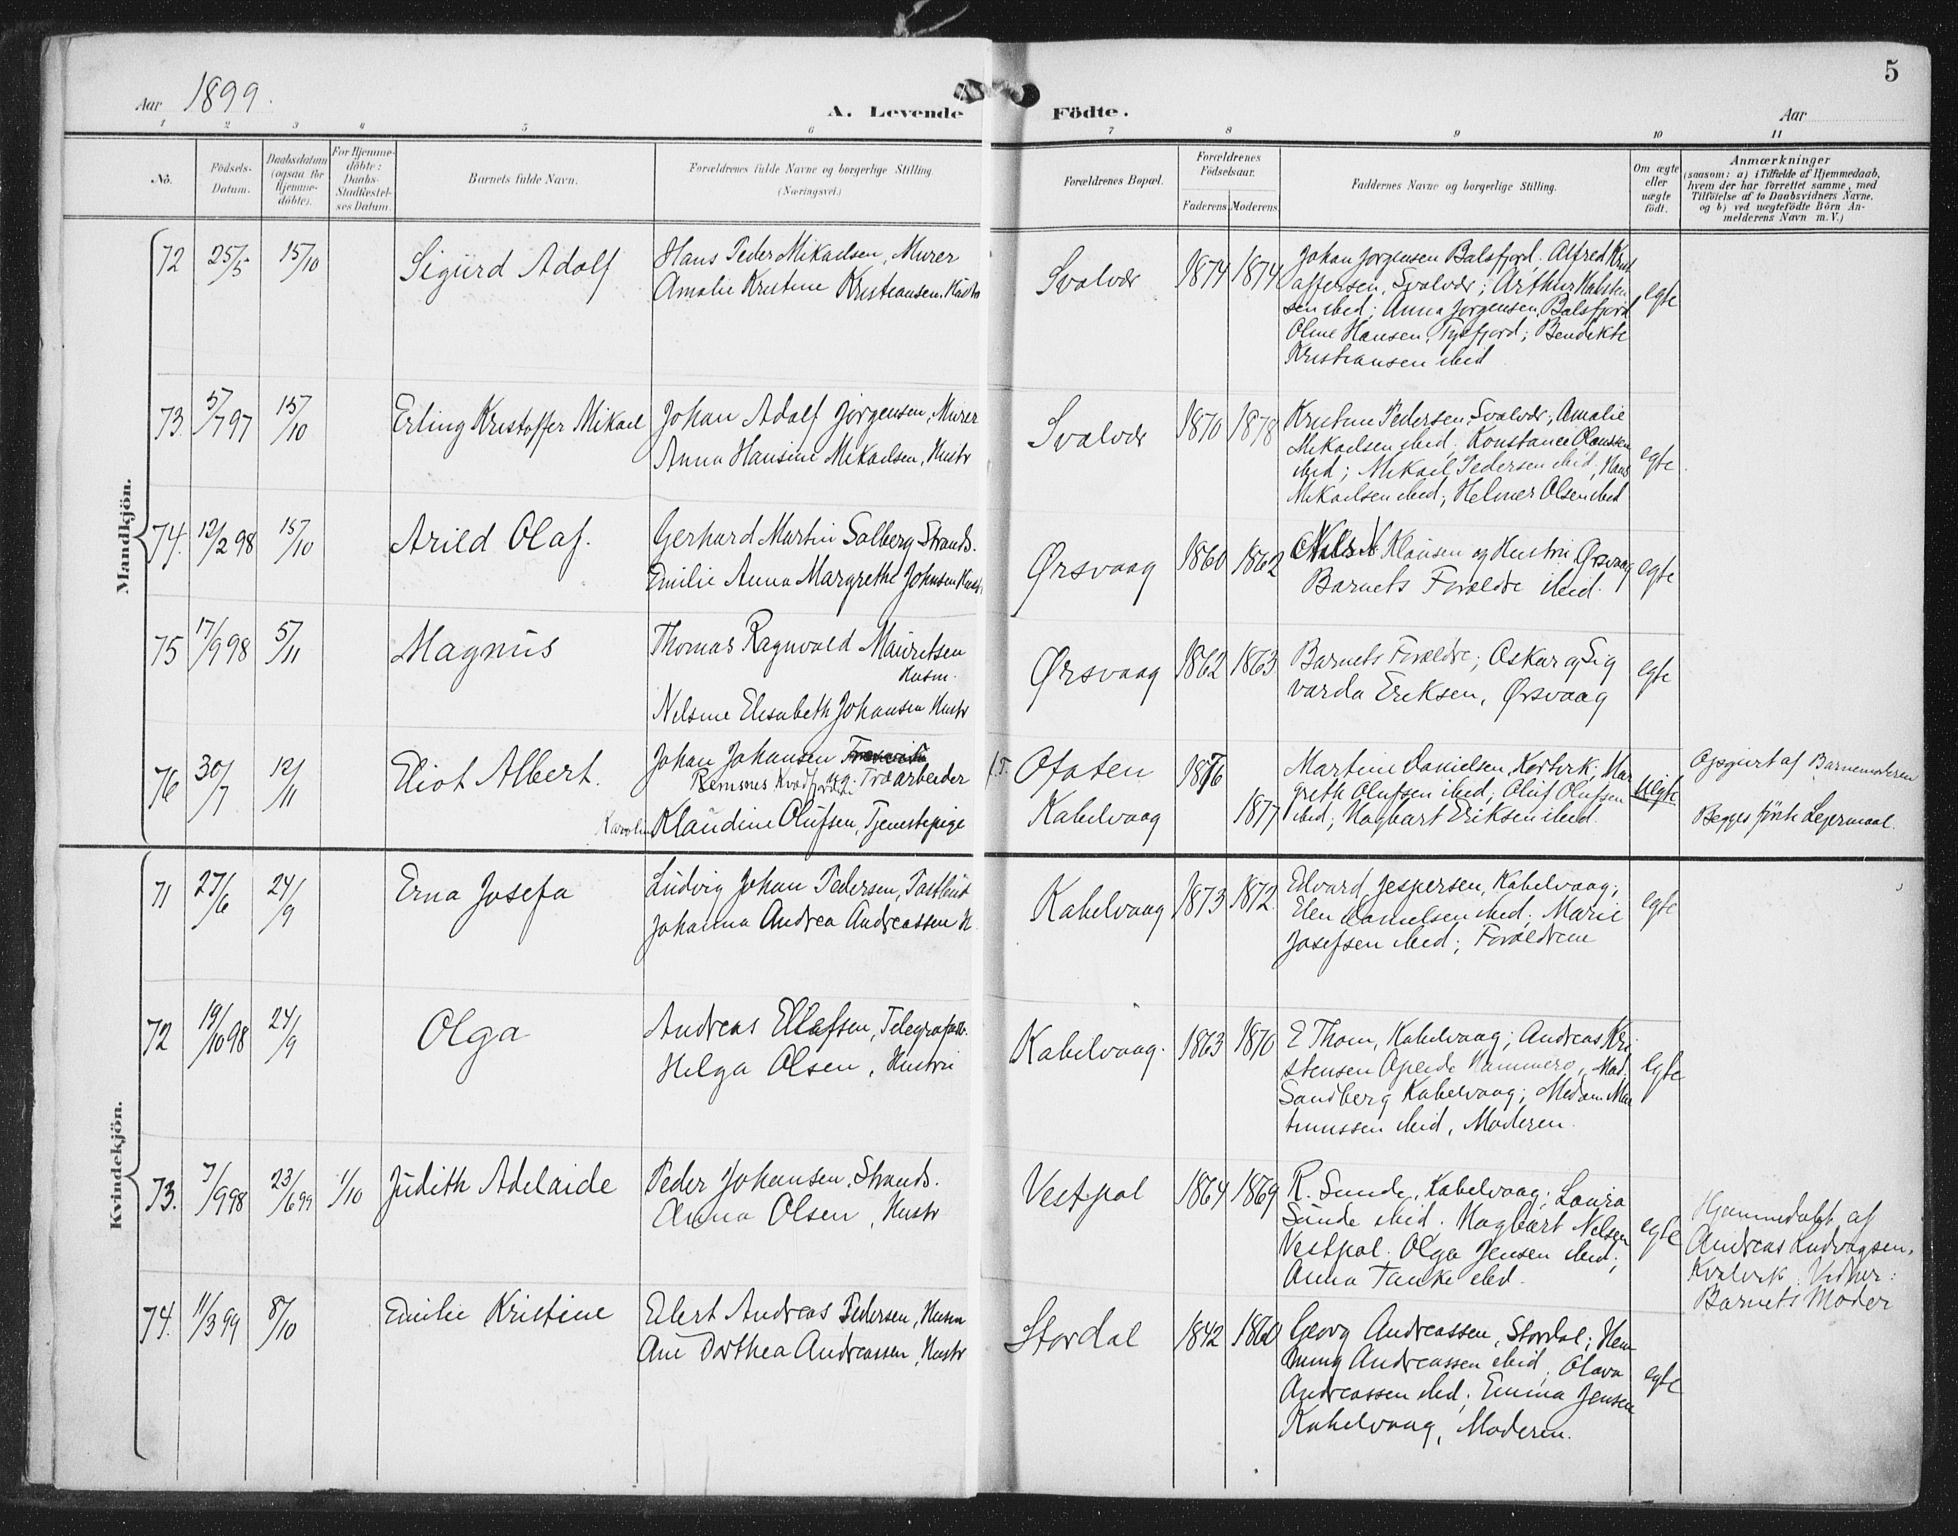 5
Aar 1899.
A. Levende Födte.
Aar
1 2 3 4 5 6 7 8 9 10 11
No.
Födsels-
Datum.
Daabsdatum
(ogsaa for
Hjemme-
döbte).
For Hjemme-
döbte:
Daabs-
Stadfæstel-
ses Datum.
Barnets fulde Navn.
Forældrenes fulde Navne og borgerlige Stilling.
(Næringsvei.)
Forældrenes Bopæl.
Forældrenes
Födselsaar.
Faderens
Moderens
Faddernes Navne og borgerlige Stilling.
Om ægte
eller
uægte
födt.
Anmærkninger
(saasom: a) i Tilfælde af Hjemmedaab,
hvem der har forrettet samme, med
Tilföielse af to Daabsvidners Navne,
og b) ved uægtefödte Börn An-
melderens Navn m. V.)
Mandkjön.
72 25/5 15/10 Sigurd Adolf
Hans Peder Mikaelsen, Murer
Amalie Kristine Kristiansen, Hustr
Svolvær 1874 1874
Johan Jorgensen Balsfjord. Alfred Krist
offersen, Svolvær; Arthur
sen ibid; Anna Jorgensen, Balsfjord
Oline Hansen, Tysfjord; Bendikte
Kristiansen ibid
egte
73. 5/7 97 15/10 Erling Kristoffer Mikael
Johan Adolf Jorgensen, Murer
Anna Hansine Mikaelsen, Hustr
Svolvær 1870 1878
Kristine Pedersen, Svolvær; Amalie
Mikaelsen ibid, Konstance
ibid; Mikael Pedersen ibid, Hans
Mikaelsen ibid; Helmer Olsen ibid
egte
74. 12/2 98 15/10 Arild Olaf.
Gerhard Martin Solberg Strands.
Emilie Anna Margrethe Johnsen Hustr
Ørsvaag 1860 1862
Klausen og Hustru Ørsvaag
Barnets Forældre ibid.
egte
75 17/9 98 5/11 Magnus
Thomas Ragnvald Mauritsen
Husm.
Nilsine Elisabeth Johansen Hustr
Ørsvaag 1862 1863
Barnets Forældre; Oskar og Sig
varda Eriksen, Ørsvaag
egte
76 30/7 12/11 Eliot Albert.
Johan Johansen
Kvæfjord Træarbeider
Klaudine Olufsen, Tjenestepige
Ofoten
Kabelvaag
1876
1877
Martine Danielsen, Mar
grethe Olufsen ibid; Oluf Olufsen
ibid; Hagbart Eriksen ibid.
Uegte
Opgivet af Barnemoderen
Begges förste Leiermaal.
Kvindekjön.
71 27/6 24/9 Erna Josefa
Ludvig Johan Pedersen,
Johanna Andrea Andreassen H.
Kabelvaag 1873 1872
Edvard Jespersen, Kabelvaag;
Elen Danielsen ibid; Marie
Josefsen ibid; Forældrene
egte
72 19/10 98 24/9 Olga
Andreas Ellefsen,
Helga Olsen, Hustru
Kabelvaag. 1863 1870
E Thom, Kabelvaag; Andreas Kri
stensen Hammerø, Mad.
Sandberg Kabelvaag; Madam
ibid, Moderen.
egte
73. 7/9 98 23/6 99 1/10 Judith Adelaide
Peder Johansen, Strands.
Anna Olsen, Hustr
Vestpol 1864 1869
R. Sunde, Kabelvaag; Laura
Sunde ibid. Hagbart Nilsen
Vestpol. Olga Jensen ibid;
Anna Tanke ibid.
egte
Hjemmedøbt af
Andreas Ludvigsen,
Kvalvik. Vidner:
Barnets Moder
74. 11/3 99 8/10 Emilie Kristine
Elert Andreas Pedersen, Husm
Ane Dorthea Andreassen, Hustr
Stordal 1842 1860
Georg Andreassen, Stordal; Hem
ming Andreassen ibid; Olava
Andreassen ibid; Emma Jensen
Kabelvaag, Moderen.
egte